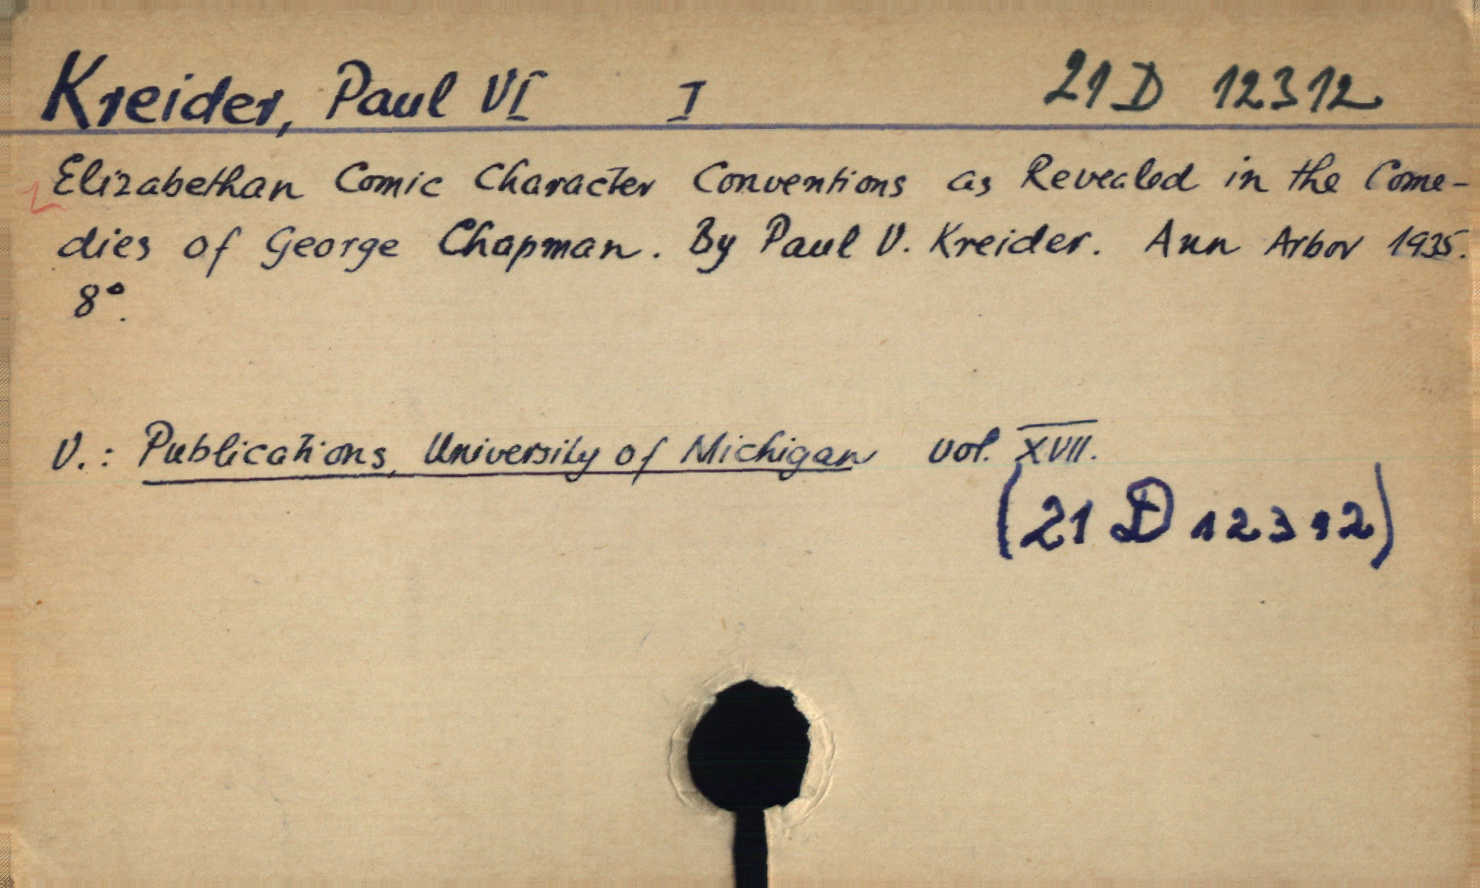 Kreider, Paul VI I 21 D 12312
Elizabethan Comic Character Conventions as Revealed in the Come-
dies of George Chapman. By Paul V. Kreider. Ann Arbor 1935.
8°.
V.: Publications, University of Michigan vol. XVII.
(21 D 12312)